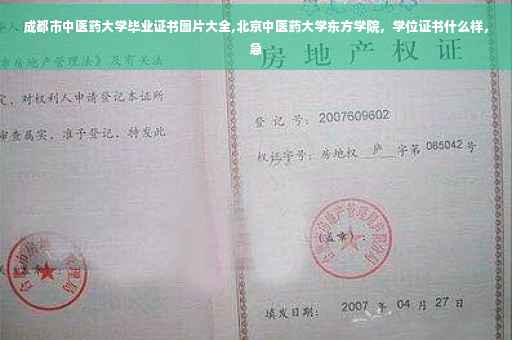 成都市中医药大学毕业证书图片大全,北京中医药大学东方学院，学位证书什么样，
急
房地产权证
房地产管理法》及有关法
定，对权利人申请登记本证所
审查属实，准予登记，特发此
登 记 号：2007609602
权证字号：房地权 庐 字第 085042 号
(盖章)：
填发日期： 2007 年 04 月 27 日